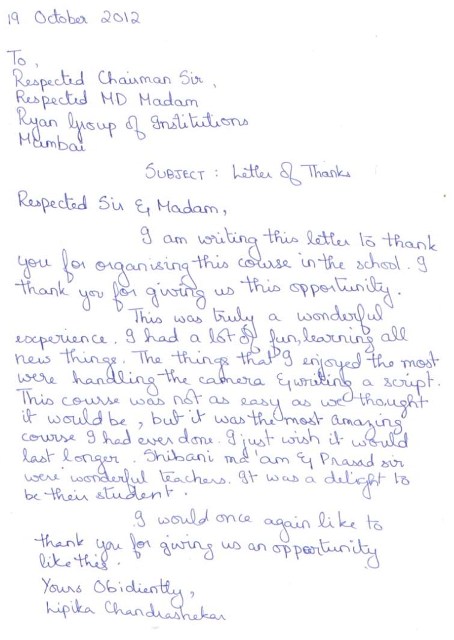 19 October 2012
To,
Respected Chairman Sir,
Respected MD Madam
Ryan Group of Institutions
Mumbai
SUBJECT : Letter of Thanks
Respected Sir & Madam,
I am writing this letter to thank
you for organising this course in the school. I
thank you for giving us this opportunity.
This was truly a wonderful
experience. I had a lot of fun, learning all
new things. The things that I enjoyed the most
were handling the camera & writing a script.
This course was not as easy as we thought
it would be, but it was the most amazing
course I had ever done. I just wish it would
last longer. Shibani ma'am & Prasad sir
were wonderful teachers. It was a delight to
be their student.
I would once again like to
thank you for giving us an opportunity
like this.
Yours Obidiently,
Lipika Chandrashekar